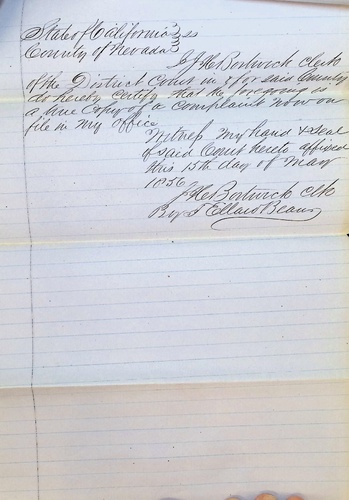 State of California } ss
County of Nevada }
I J H Bostwick Clerk
of the District Court in & for said County
do hereby Certify that the foregoing is
a true Copy of a Complaint now on
file in my office
Witness my hand & Seal
of said Court hereto affixed
this 15th day of May
1856
J H Bostwick Clk
By T Ellard Beans